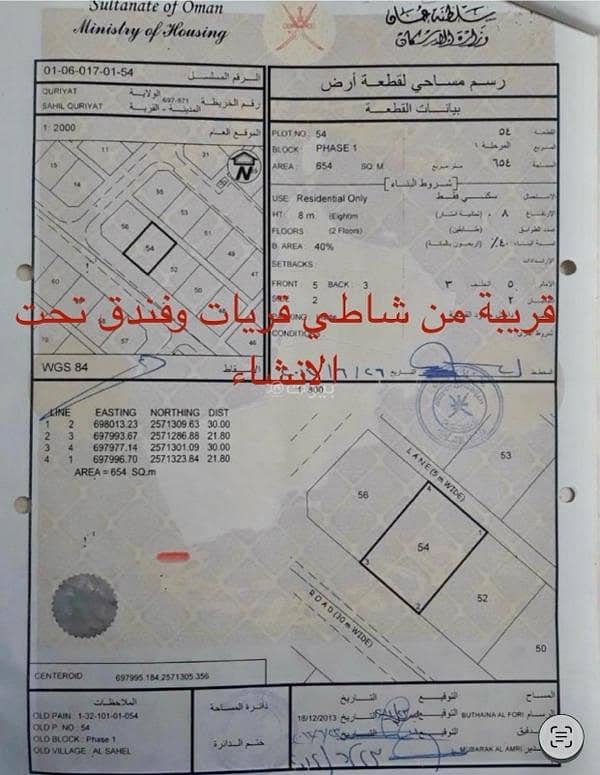 Sultanate of Oman
Ministry of Housing
سلطنة عمان
وزارة الإسكان
01-06-017-01-54
الرقم المسلسل
QURIYAT
الولاية
SAHIL QURIYAT
697-571
المدينة - القرية
رقم الخريطة
1: 2000
الموقع العام
رسم مساحي لقطعة أرض
بيانات القطعة
PLOT NO: 54
٥٤
قطعة
BLOCK PHASE 1
المرحلة ١
المربع
AREA: 654 SQ. M
متر مربع
٦٥٤
شروط البناء
USE: Residential Only
سكني فقط
الاستعمال
HT: 8 m. (Eight)m
٨
الارتفاع
FLOORS (2 Floors)
(طابقين)
عدد الطوابق
B. AREA: 40%
٤٠٪
(أربعون بالمائة)
SETBACKS:
الارتدادات
FRONT 5 BACK : 3
٣
الخلف
٥
الأمام
2
٢
قريبة من شاطي قريات وفندق تحت
الانشاء
WGS 84
1: 800
LINE EASTING NORTHING DIST
1 2 698013.23 2571309.63 30.00
2 3 697993.67 2571286.88 21.80
3 4 697977.14 2571301.09 30.00
4 1 697996.70 2571323.84 21.80
AREA = 654 SQ.m
LANE (5 m WIDE)
53
56
54
52
50
ROAD (30 m WIDE)
CENTEROID 697995.184,2571305.356
الملاحظات
OLD PAIN : 1-32-101-01-054
OLD P. NO : 54
OLD BLOCK : Phase 1
OLD VILLAGE AL SAHEL
دائرة المساحة
ختم الدائرة
التاريخ
التوقيع
المساح
18/12/2013
التاريخ
التوقيع
BUTHAINA AL FORI
الرسام
التاريخ
التوقيع
MUBARAK AL AMRI